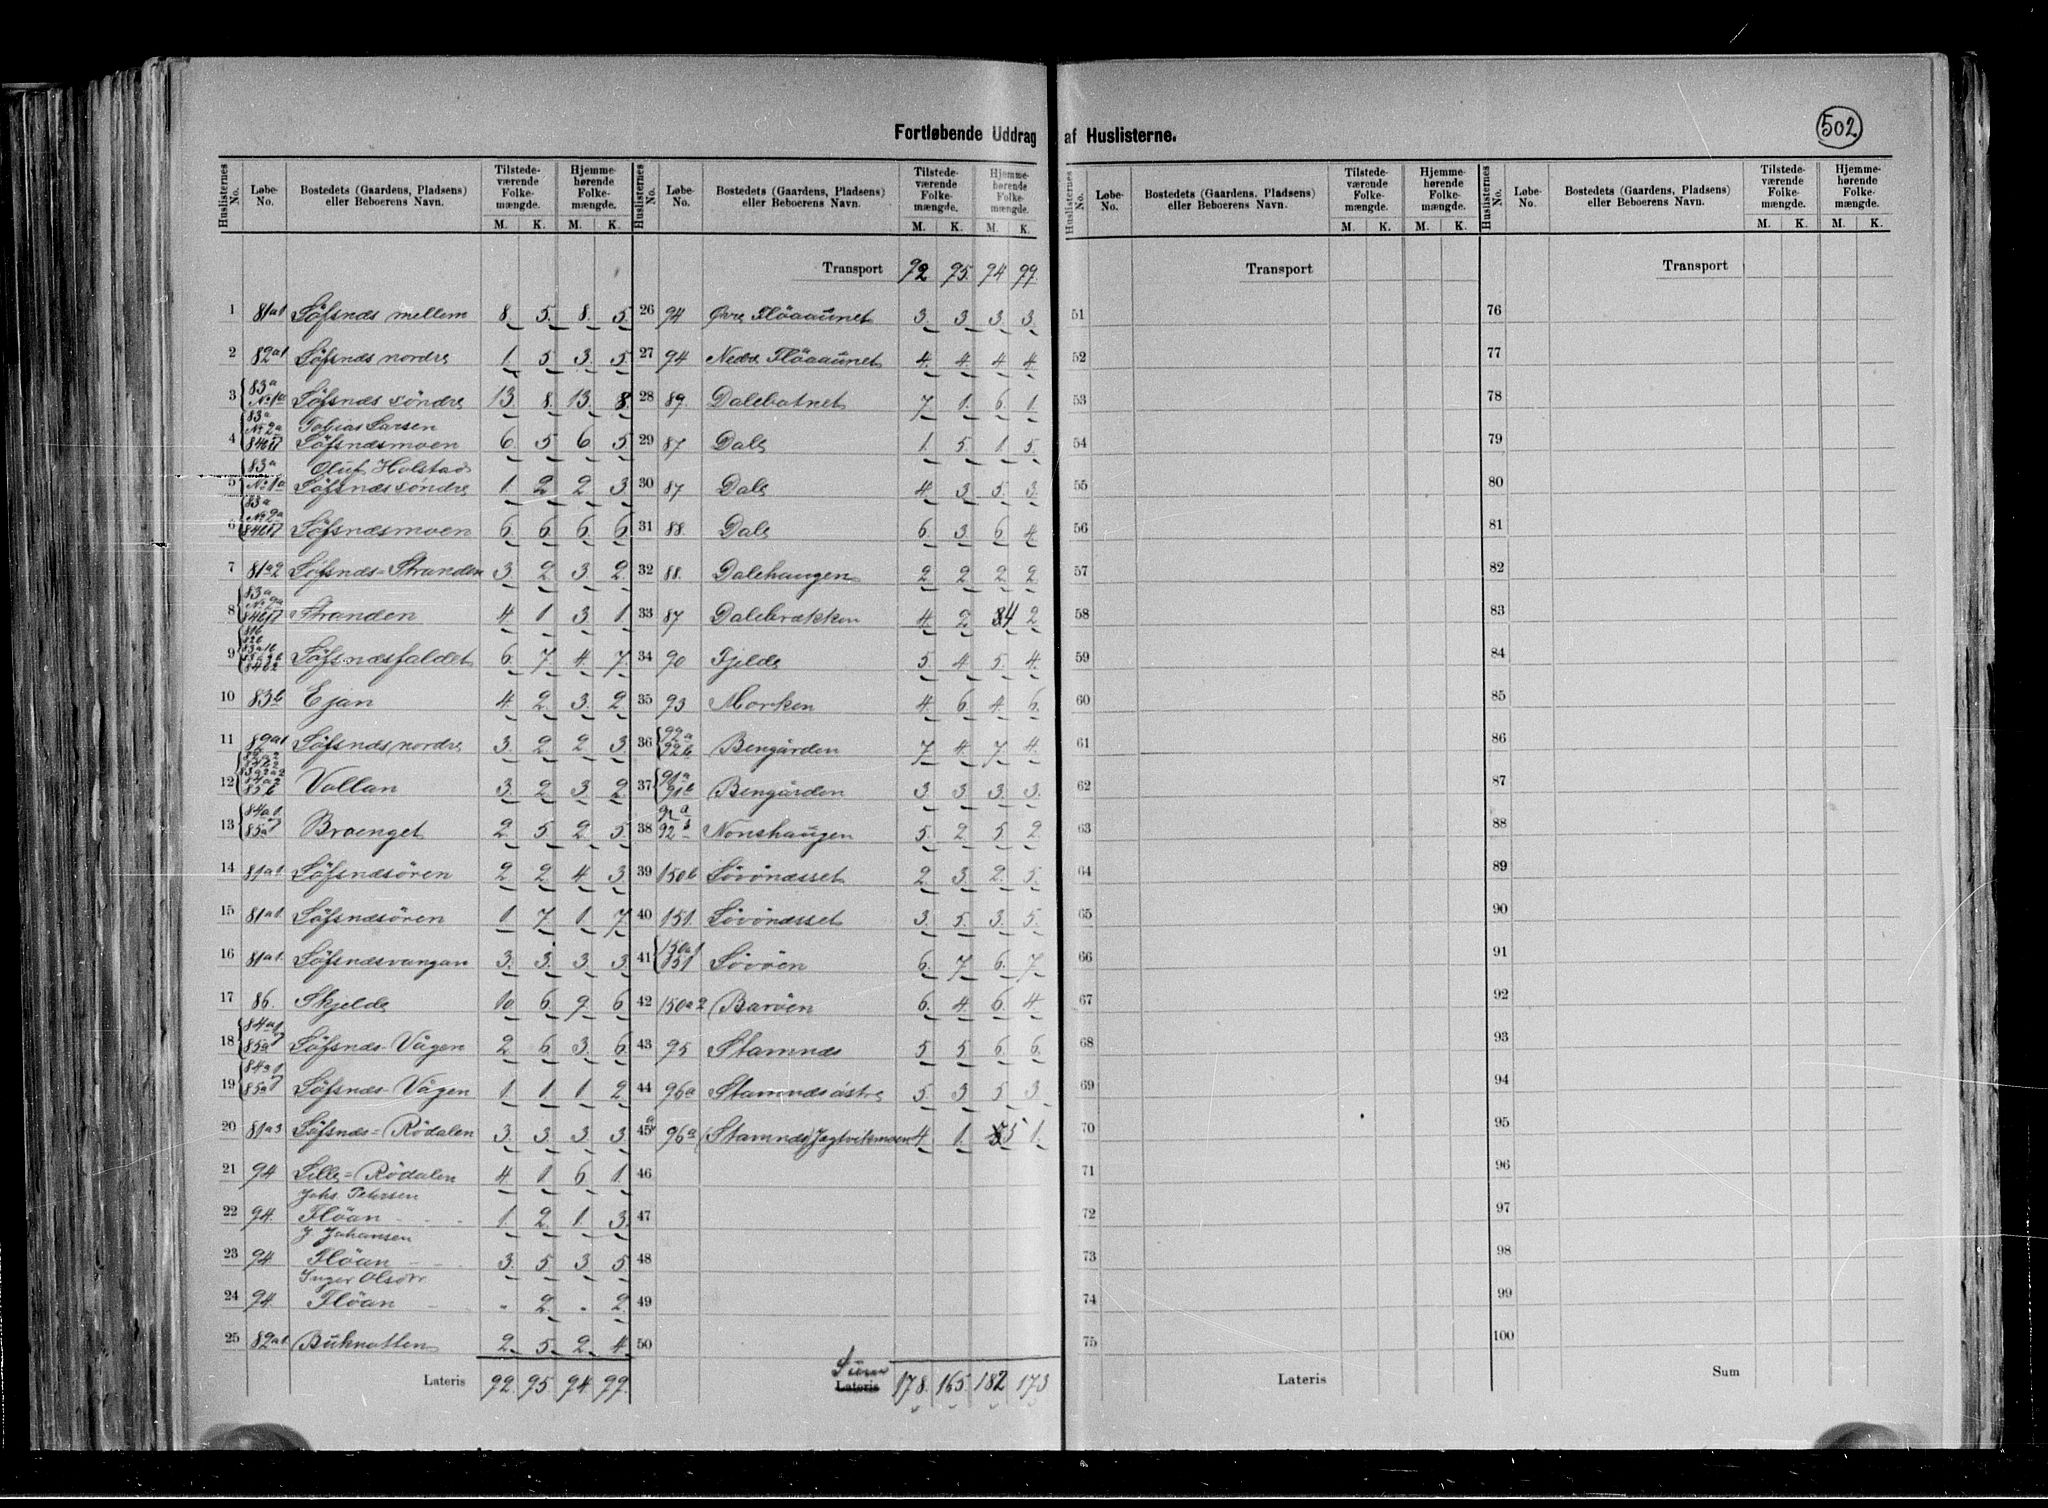 502
Fortløbende Uddrag af Huslisterne.
Huslisternes No. Løbe-No. Bostedets (Gaardens, Pladsens) eller Beboerens Navn. Tilstedeværende Folkemængde. M. K. Hjemmehørende Folkemængde. M. K.
1 81a1 Söfsnæs mellem 8. 5. 8. 5.
2 82a1 Söfsnæs nordre 1. 5. 3. 5.
3 83a No 1a Söfsnæs söndre 13. 8. 13. 8.
Tobias Larsen
4 83a No 2a Söfsnæsmoen 6. 5. 6. 5.
Oluf Holstad
5 83a No 1a Söfsnæs söndre 1. 2. 2. 3.
6 83a No 2a Söfsnæsmoen 6. 6. 6. 6.
7 81a2 Söfsnæs=Stranden 3. 2. 3. 2.
8 83a No 2a Stranden 4. 1 3. 1.
9 Söfsnæsfaldet 6. 7. 4. 7.
10 83b Ejan 4. 2. 3. 2.
11 82a1 Söfsnæs nordre 3. 2. 2. 3.
12 85b Vollan 3. 2. 3. 2.
13 84a1 85a Braenget 2. 5. 2. 5.
14 81a1. Söfsnæsören 2. 2. 4. 3.
15 81a1. Söfsnæsören 1. 7. 1. 7.
16 81a1. Söfsnæsvangan 3. 3. 3. 3.
17 86. Skjelde 10 6. 9. 6.
18 84a1 85a Söfsnæs-Vågen 2. 6. 3. 6.
19 84a1 85a Söfsnæs-Vågen 1. 1. 1. 2.
20 81a3 Söfsnæs=Rödalen 3. 3. 3. 3.
21 94 Lille=Rödalen 4. 1. 6. 1.
Johs. Petersen
22 94. Flöan 1. 2. 1. 3.
J. Johansen
23 94 Flöan 3. 5. 3. 5.
Inger Olsdtr
24 94. Flöan " 2. " 2.
25 82a1. Buknotten 2. 5. 2. 4.
Lateris 92. 95. 94. 99.
Huslisternes No. Løbe-No. Bostedets (Gaardens, Pladsens) eller Beboerens Navn. Tilstedeværende Folkemængde. M. K. Hjemmehørende Folkemængde. M. K.
Transport 92 95. 94 99.
26 94 Øvre Flöaaunet 3. 3. 3. 3.
27 94 Nedre Flöaaunet 4. 4. 4. 4.
28 89. Dalebotnet 7. 1. 6. 1.
29 87 Dale 1. 5. 1. 5.
30 87 Dale 4. 3. 5. 3.
31 88. Dale 6. 3. 6. 4.
32 88. Dalehaugen 2. 2. 2. 2.
33 87 Dalebrækken 4. 2. 4 2.
34 90 Fjelde 5. 4. 5. 4.
35 93 Morken 4. 6. 4. 6.
36 92a 92b Bengården 7. 4. 7. 4.
37 91a 91b Bengården 3. 3. 3. 3.
38 92 Nonshaugen 5. 2. 5. 2.
39 150b Sövönæsset 2. 3. 2. 5.
40 151. Sövönæsset 3. 5. 3. 5.
41 150a1 151 Sövöen 6. 7. 6. 7.
42 150a2 Baröen 6. 4. 6. 4.
43 95 Stamnæs 5. 5. 6. 6.
44 96a Stamnæs östre 5. 3. 5. 3.
45 96a (Stamnæs) Jegtvikmoen 4 1. 5 1.
46
47
48
49
50
Sum
Lateris 178. 165. 182 173
Huslisternes No. Løbe-No. Bostedets (Gaardens, Pladsens) eller Beboerens Navn. Tilstedeværende Folkemængde. M. K. Hjemmehørende Folkemængde. M. K.
Transport
51
52
53
54
55
56
57
58
59
60
61
62
63
64
65
66
67
68
69
70
71
72
73
74
75
Lateris
Huslisternes No. Løbe-No. Bostedets (Gaardens, Pladsens) eller Beboerens Navn. Tilstedeværende Folkemængde. M. K. Hjemmehørende Folkemængde. M. K.
Transport
76
77
78
79
80
81
82
83
84
85
86
87
88
89
90
91
92
93
94
95
96
97
98
99
100
Sum